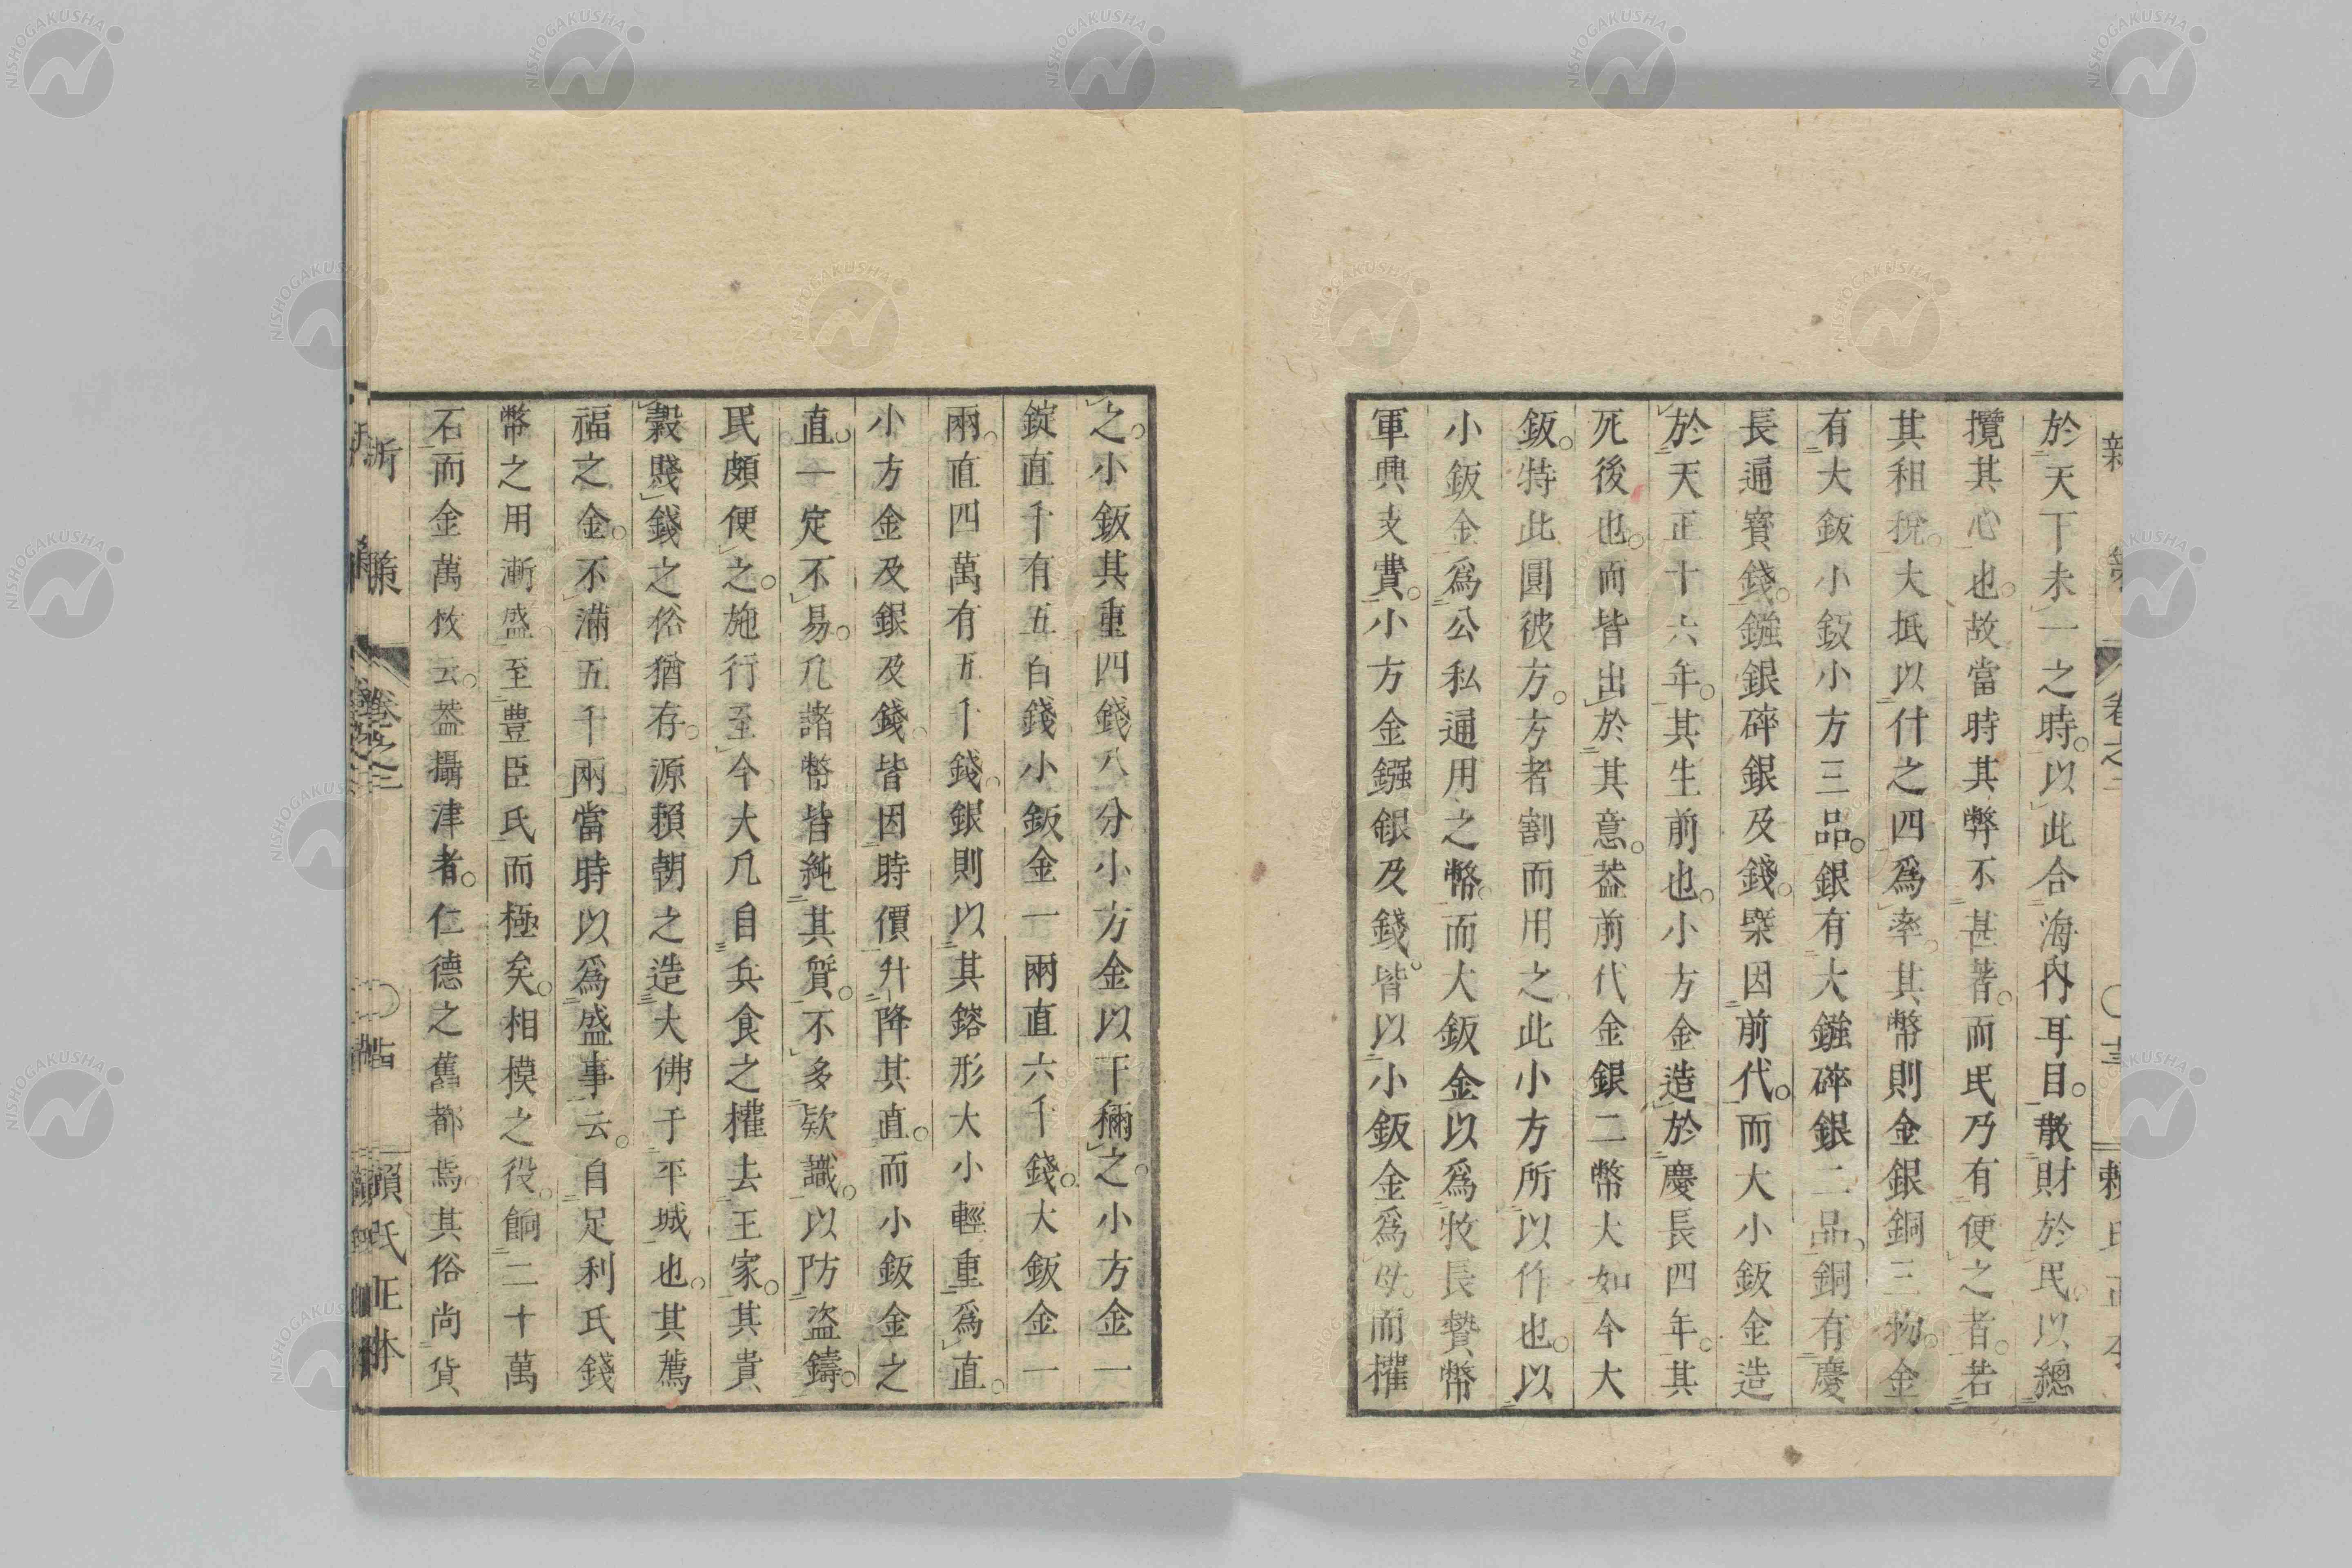 於天下未一之時。以此合海内耳目。散財於民。以總
攬其心也。故當時其弊不甚著。而民乃有便之者。若
其租稅。大抵以什之四爲率。其幣則金銀銅三物。金
有大鈑小鈑小方三品。銀有大鏹碎銀二品。銅有慶
長通寳錢。鏹銀碎銀及錢。槩因前代。而大小鈑金造
於天正十六年。其生前也。小方金造於慶長四年。其
死後也。而皆出於其意。葢前代金銀二幣大如今大
鈑。特此圓彼方。方者割而用之此小方所以作也。以
小鈑金爲公私通用之幣。而大鈑金以爲牧長贄幣
軍興支費。小方金鏹銀及錢。皆以小鈑金爲母。而權
之。小鈑其重四錢八分小方金以干稱之。小方金一
錠直千有五百錢小鈑金一兩直六千錢。大鈑金一
兩。直四萬有五千錢。銀則以其鎔形大小輕重爲直。
小方金及銀及錢。皆因時價升降其直。而小鈑金之
直。一定不易。凡諸幣皆純其質。不多欵識。以防盜鑄。
民頗便之。施行至今大凡自兵食之權去王家。其貴
穀賤錢之俗猶存。源賴朝之造大佛于平城也。其薦
福之金。不滿五千兩當時以爲盛事云。自足利氏錢
幣之用漸盛。至豊臣氏而極矣。相模之役。餉二十萬
石而金萬枚云。葢攝津者。仁德之舊都焉。其俗尚貨
新策
卷之三
賴氏正本
NISHOGAKUSHA